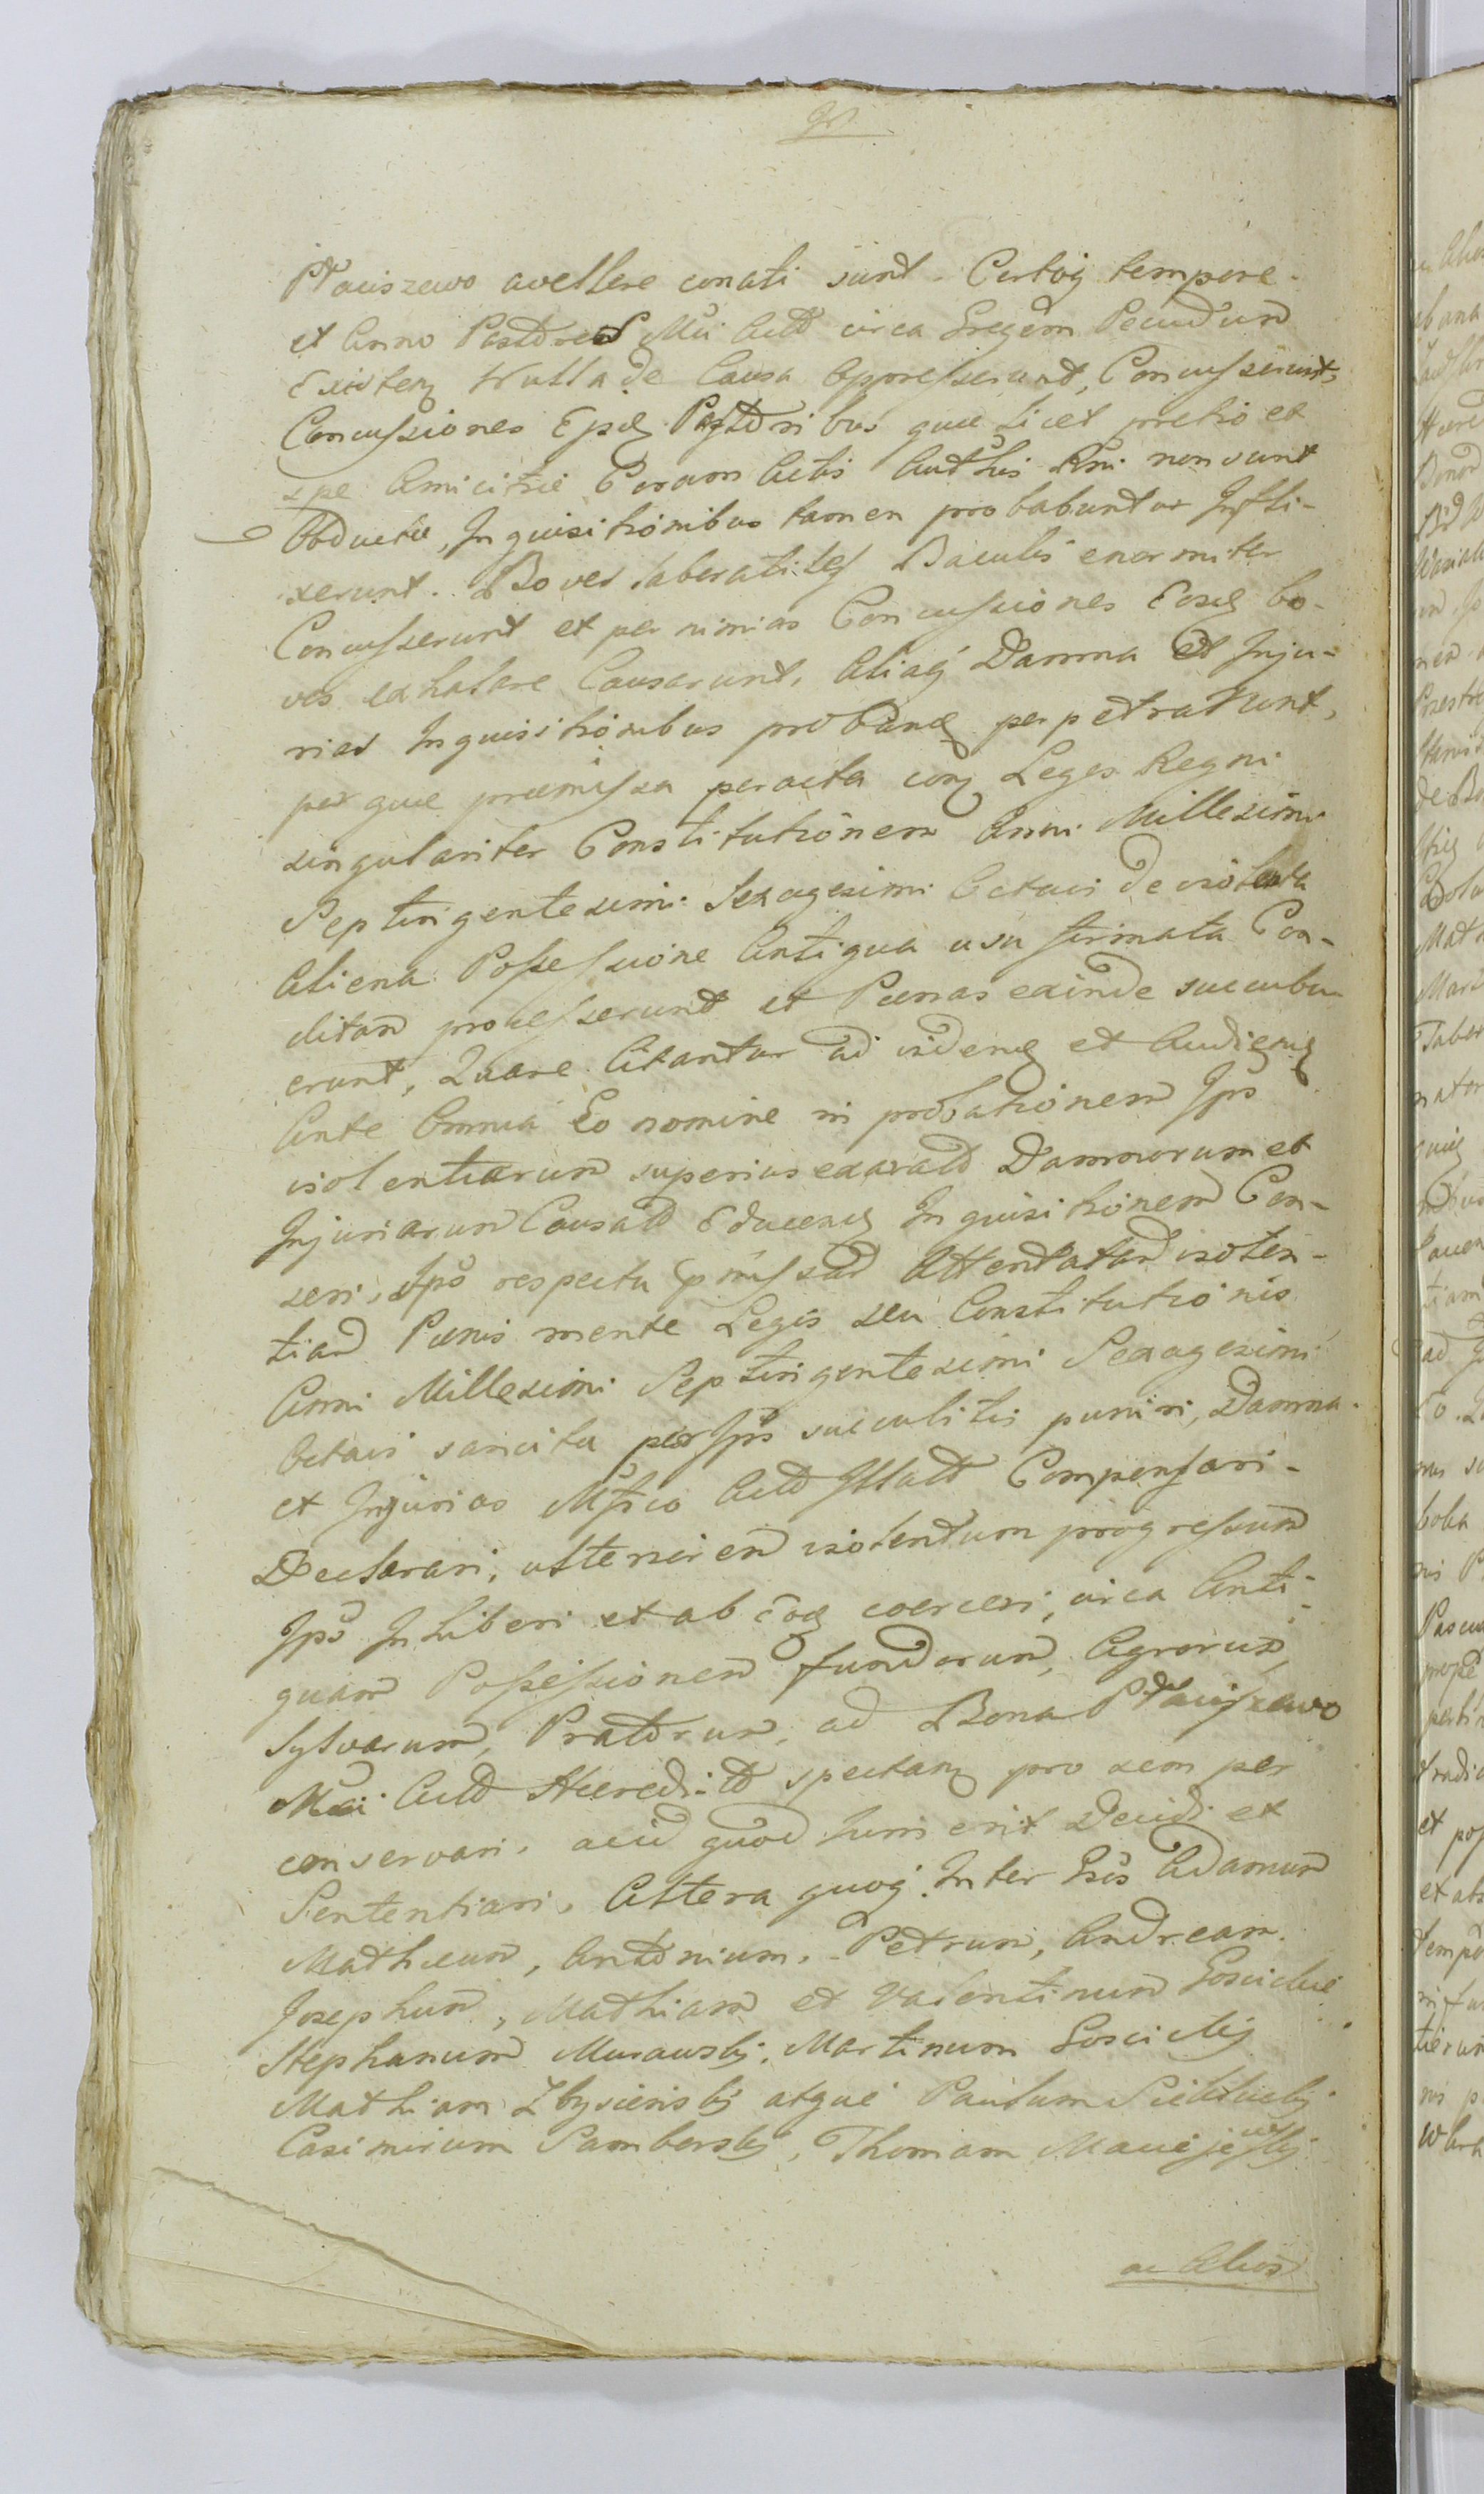 Ptaciszewo avellere conati sunt. Certoq tempore
et Anno Pastores Mci Actt circa Gregem Pecudum
Existen Nulla de Causa oppresserunt, Concusserunt,
Concussiones Ejsd Pastoribus quae licet pretio et
spe Amicitiae Coram Actis Authis Rni non sunt
Obductae, Inquisitionibus tamen probabuntur Infli-
xerunt. Boves Baculis enormiter
Concusserunt et per nimias Concussiones Eosd bo-
ves exhalare Causarunt, Aliaq Damna et Inju-
rias Inquisitionibus proband perpetrarunt,
per quae praemissa peracta con Leges Regni
singulariter Constitutionem Anni Millesimi
Septingentesimi Sexagesimi Octavi de violata
Aliena Possessione Antiqua usu firmata Con-
ditam processerunt et Poenas exinde succubu-
erunt, Quare Citantur ad vidend et Audiend
Ante Omnia Eo nomine in probationem Ips
violentiarum superius exaratt Damnorum et
Injuriarum Causatt Educend Inquisitionem Cen-
seri, Ips respectu pmissar Attentatar violen-
tiar Poenis mente Legis seu Constitutionis
Anni Millesimi Septingentesimi Sexagesimi
Octavi sancita per Ips succubitis puniri, Damna
et Injurias Mfico Actt Illatt Compensari
Declarari, ulteriorem violentum progressum
Ips Inhiberi et ab Eod coerceri, circa Anti-
quam Possessionem fundorum, Agrorum,
Sylvarum, Pratorum, ad Bona Ptaciszewo
Mci Actt Haereditt spectan pro semper
conservari, acid quod Juris erit Decidi et
Sententiari, Altera quoq Inter Gsos Adamum
Mathaeum, Antonium, Petrum, Andream
Josephum, Mathiam et Valentinum Goscickie
Stephanum Murawski, Martinum Goscicki
Mathiam Zbysienski atque Paulum
Casimirum Samborski, Thomam Maciejewski
ac Alios